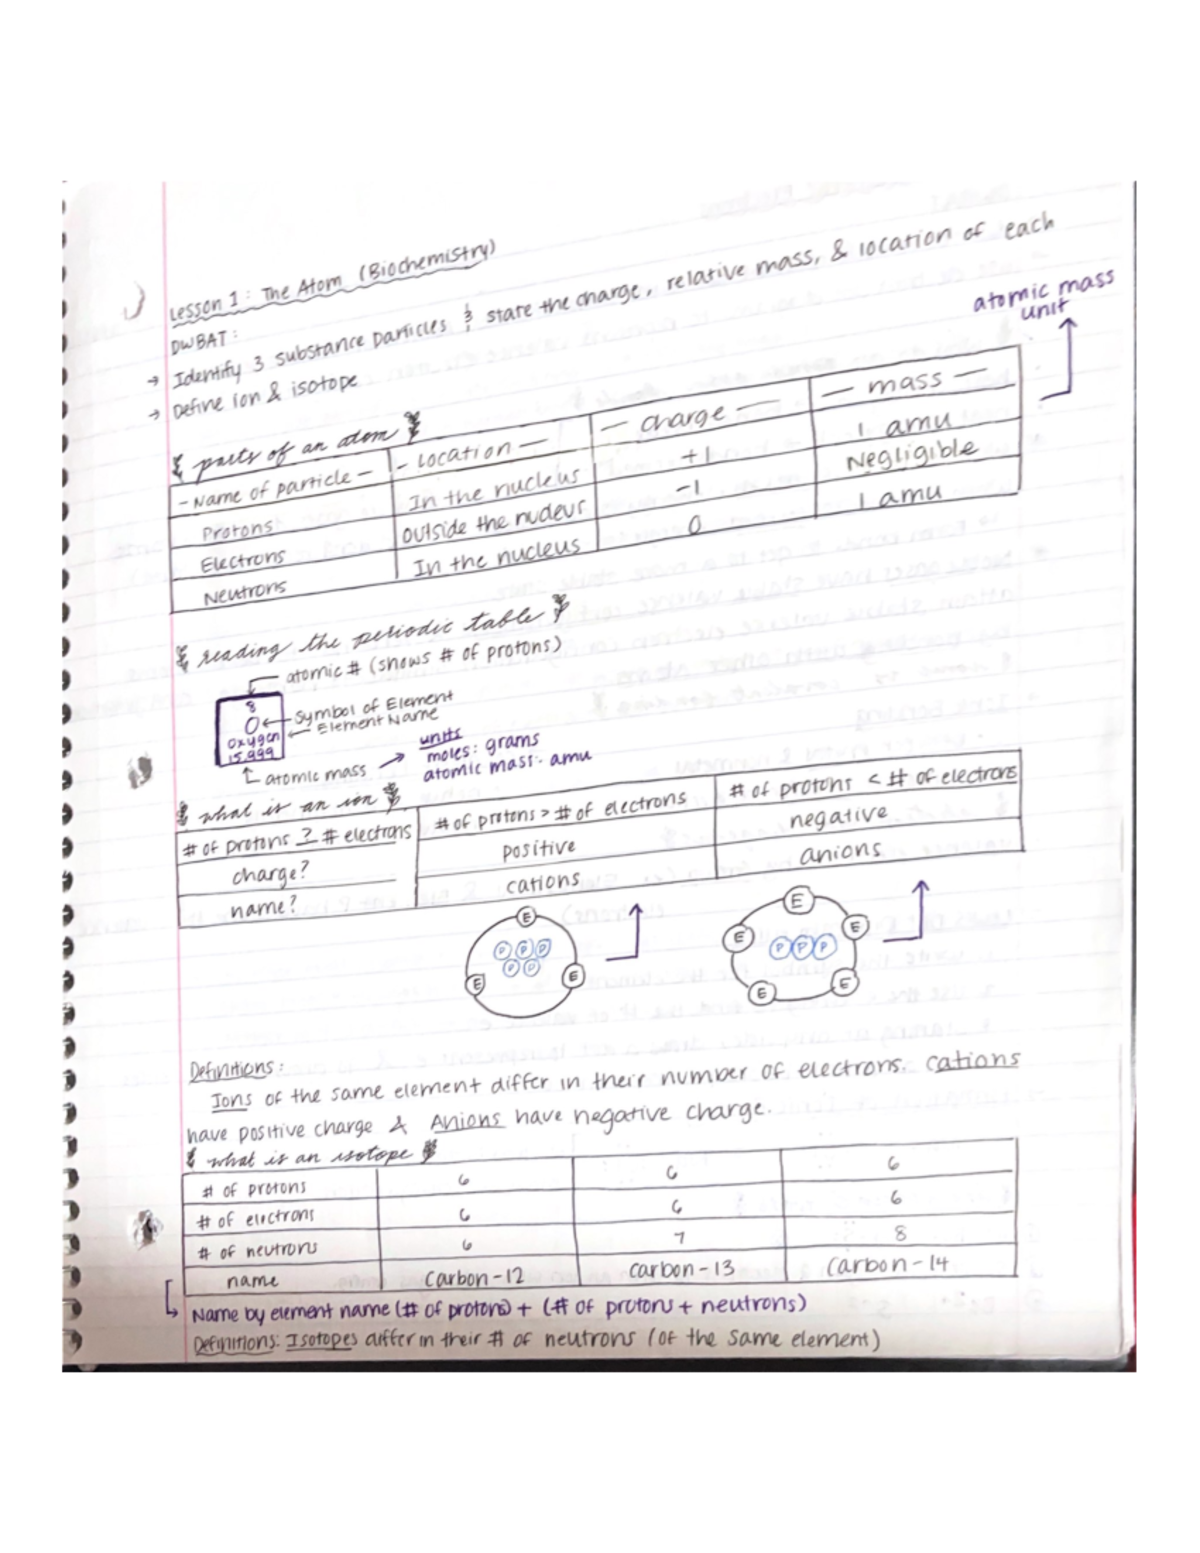 Lesson 1: The Atom (Biochemistry)
DWBAT:
→ Identify 3 substance particles & state the charge, relative mass, & location of each
→ Define ion & isotope
atomic mass unit
parts of an atom
- Name of particle - | - Location - | - charge - | - mass -
Protons | In the nucleus | +1 | 1 amu
Electrons | outside the nucleus | -1 | Negligible
Neutrons | In the nucleus | 0 | 1 amu
reading the periodic table
atomic # (shows # of protons)
8
O ← symbol of Element
oxygen ← Element Name
15.999
atomic mass →
units
moles: grams
atomic mass: amu
what is an ion
# of protons ? # electrons | # of protons > # of electrons | # of protons < # of electrons
charge? | positive | negative
name? | cations | anions
E E E P P P P P
E E E E E P P P
Definitions:
Ions of the same element differ in their number of electrons. Cations
have positive charge & Anions have negative charge.
what is an isotope
# of protons | 6 | 6 | 6
# of electrons | 6 | 6 | 6
# of neutrons | 6 | 7 | 8
name | Carbon-12 | Carbon-13 | Carbon-14
Name by element name (# of protons) + (# of protons + neutrons)
Definitions: Isotopes differ in their # of neutrons (of the same element)